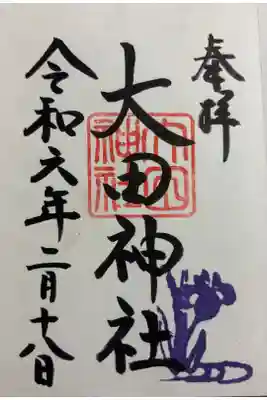 奉拝
大田神社
令和六年二月十八日
大田神社